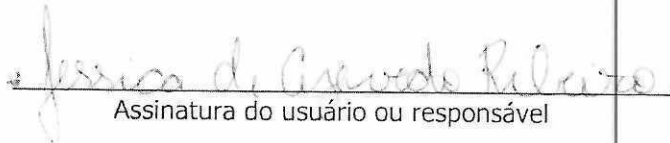 Jessica de Azevedo Ribeiro
Assinatura do usuário ou responsável